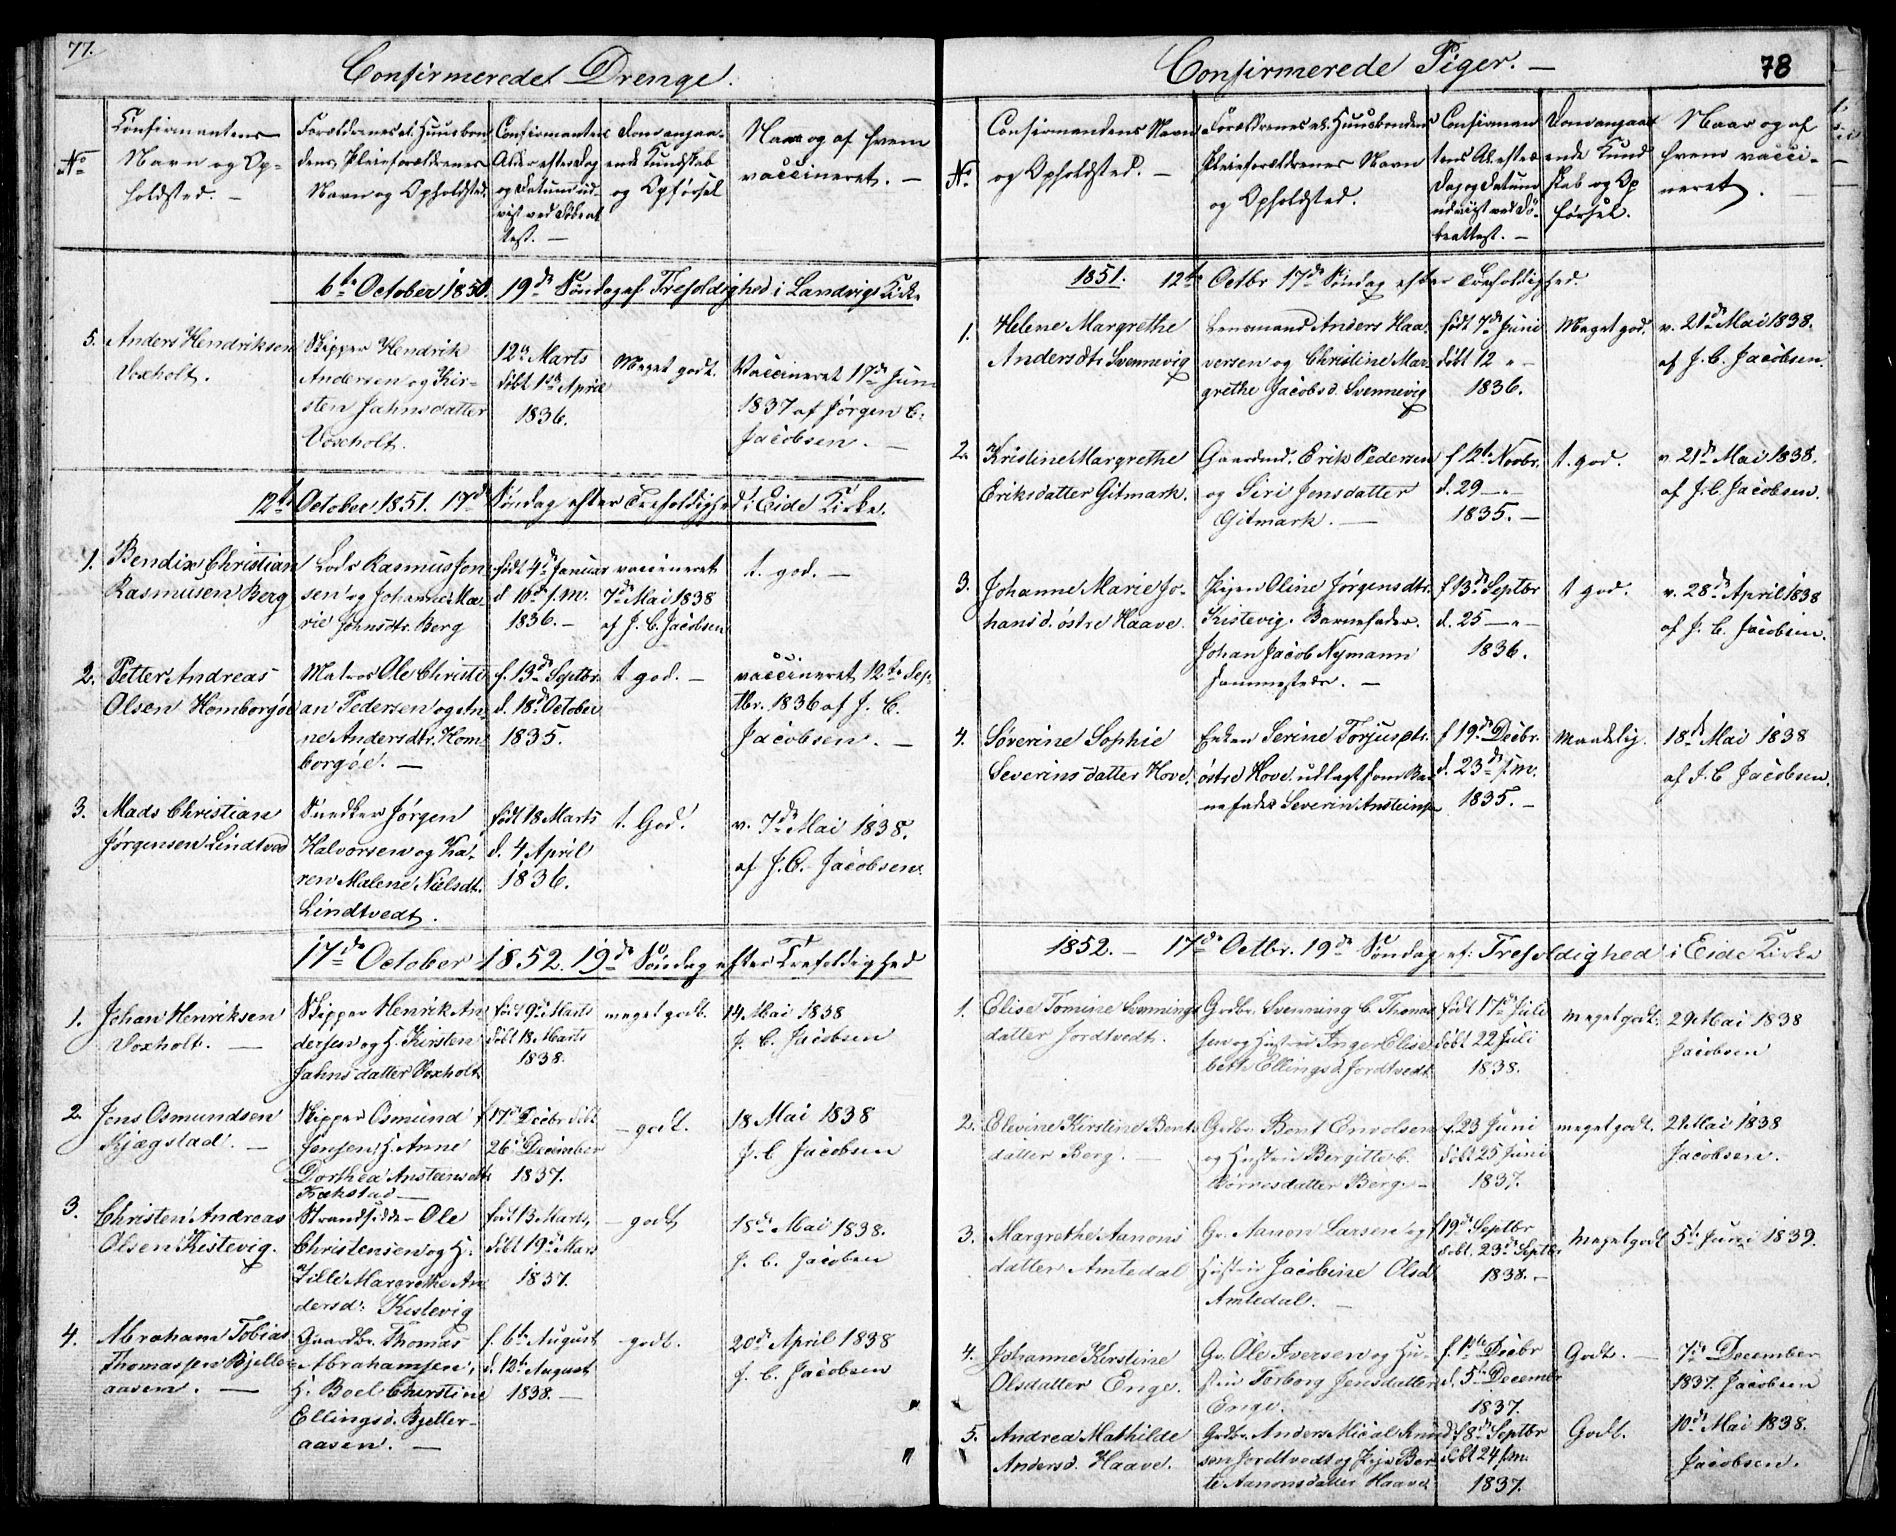 77.
Confirmerede Drenge.
No
Confirmantens
Navn og Op-
holdsted. -
Forældrenes el. Huusbon-
dens, Pleieforældrenes
Navn og Opholdsted.
Confirmantens
Alder efter Dag
og Datum ud-
vist ved Døbeat-
test. -
Dom angaa-
ende Kundskab
og Opførsel
Naar og af hvem
vaccineret. -
6te October 1850. 19de Søndag ef Trefoldighed i Landvigs Kirke
5.
Anders Hendriksen
Voxholt.
Skipper Hendrik
Andersen og Kir-
sten Jahnsdatter
Voxholt.
12te Marts
døbt 1ste April
1836.
Meget godt.
Vaccineret 17de Juni
1837 af Jørgen C.
Jacobsen. -
12te October 1851. 17de Søndag efter Trefoldighed i Eide Kirke.
1.
Bendix Christian
Rasmusen Berg
Lods Rasmus Jon-
sen og Johanne Ma-
rie Johnsdtr. Berg
født 4de Januar
d 16de s.m.
1836. -
vaccineret
7de Mai 1838
af J. C. Jacobsen
t. god. -
2.
Petter Andreas
Olsen Homborgøe
Matros Ole Christi-
an Pedersen og An-
ne Andersdtr. Hom-
borgøe. -
f. 13de Septbr.
d. 18de October
1835.
t god. -
vaccineret 12te Sep-
tbr. 1836 af J. C.
Jacobsen. -
3.
Mads Christian
Jørgensen Lindtved
Snedker Jørgen
Halvorsen og Ka-
ren Malene Nielsdt.
Lindtvedt.
født 18 Marts
d. 4 April
1836.
t. God.
v. 7de Mai 1838.
af J. C. Jacobsen.
17de October 1852. 19de Søndag efter Trefoldighed
1.
Johan Henriksen
Voxholt. -
Skipper Henrik An
dersen og H. Kirsten
Jahnsdatter Voxholt
født 9de Marts
døbt 18 Marts
1838.
meget godt.
14 Mai 1838
J. C. Jacobsen
2.
Jens Osmundsen
Kjægstad. -
Skipper Osmund
Jensen, H. Anne
Dorthea Ansteensdtr
Kækstad -
f 17de Decbr døbt
26de December
1837.
- godt.
18 Mai 1838
J. C Jacobsen
3.
Christen Andreas
Olsen Kistevig.
Strandsidder Ole
Christensen og H.
Zille Margrethe An
dersd. Kistevig
født 13 Marts,
døbt 19de Mars
1837.
- godt
18de Mai 1838.
J. C. Jacobsen
4.
Abraham Tobias
Thomassen Bjeller
aasen. -
Gaardbr. Thomas
Abrahamsen,
H. Boel Cherstine
Ellingsd. Bjeller-
aasen. -
f. 6te August
d. 12te August
1838. -
- godt.
20de April 1838
J. C. Jacobsen
Confirmerede Piger. -
78
No
Confirmandens Navn
og Opholdsted. -
Forældrenes el. Huusbondens
Pleieforældrenes Navn
og Opholdsted.
Confirman
tens Al. efter
Dag og Datum
udviist ved Dø-
beattest. -
Dom angaa
ende Kund
skab og Op
førsel.
Naar og af
hvem vacci-
neret. -
1851. 12te Octbr 17de Søndag efter Trefoldighed.
1.
Helene Margrethe
Andersdtr Svennevig
Lensmand Anders Haa-
versen og Christine Mar-
grethe Jacobsd. Svennevig
født 7de Juni
døbt 12 " -
1836.
Meget god.
v. 21de Mai 1838.
af J. C. Jacobsen.
2.
Kristine Margrethe
Eriksdatter Gitmark.
Gaardmd. Erik Pedersen
og Siri Jensdatter
Gitmark. -
f. 12te Novbr.
d. 29 - " -
1835. -
t. god.
v. 21de Mai 1838.
af J. C. Jacobsen.
3.
Johanne Marie Jo-
hansd. østre Haave.
Pigen Oline Jørgensdtr.
Kistevig. Barnefader.
Johan Jacob Nymann
sammesteds. -
f 13de Septbr
d. 25 - " -
1836.
t god.
v. 28de April 1838
af J. C. Jacobsen.
4.
Søverine Sophie
Severinsdatter Hove.
Enken Serine Torjusdtr.
østre Hove. udlagt som Bar-
nefader Severin Ansteinsen
f 19de Decbr.
d. 23de s.m.
1835. -
Maadelig.
18de Mai 1838
af J. C Jacobsen.
1852. - 17de Octbr. 19de Søndag ef: Trefoldighed i Eide Kirke
1.
Elise Tomine Svennings
datter Jordtvedt.
Grdbr. Svenning C. Thomas
sen og Hustru Inger Elise
beth Ellingsd Jordtvedt
født 17de Juli
døbt 22 Juli
1838.
meget godt.
29 Mai 1838
Jacobsen
2.
Elevine Kirstine Bents
datter Berg. -
Grdbr. Bent Envoldsen
og Hustru Bergitte C.
datter Berg. -
f. 23 Juni
døbt 25 Juni
1837.
meget godt.
21 Mai 1838
Jacobsen.
3.
Margrethe Aanons
datter Amtedal
Gr. Aanon Larsen og
Hustru Jacobine Olsd
Amtedal. -
f 19de Septbr
døbt. 23de Septbr
1838. -
Meget godt
5te Juni 1839.
4.
Johanne Kirstine
Olsdatter Enge.
Gr. Ole Iversen og Hu-
stru Torborg Jensdatter
Enge.
f. 1ste Decbr
d. 5te December
1837.
Godt. -
7de December
1837. Jacobsen
5.
Andrea Mathilde
Andersd. Haave.
Grdbr. Anders Mical Knud
sen Jordtvedt og Pige Ber-
te Aanonsdatter Haave
f 8de Septbr
døbt 24 s.m.
1837.
Godt.
10de Mai 1838.
Jacobsen.